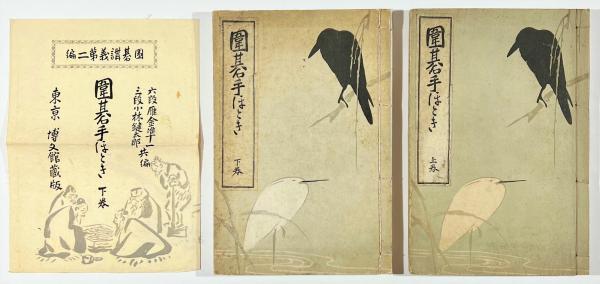 圍碁講義第二編
六段雁金準一
三段小林鍵太郎
共編
圍碁手ほとき 下巻
東京 博文館蔵版
圍碁手ほとき 下巻
圍碁手ほとき 上巻